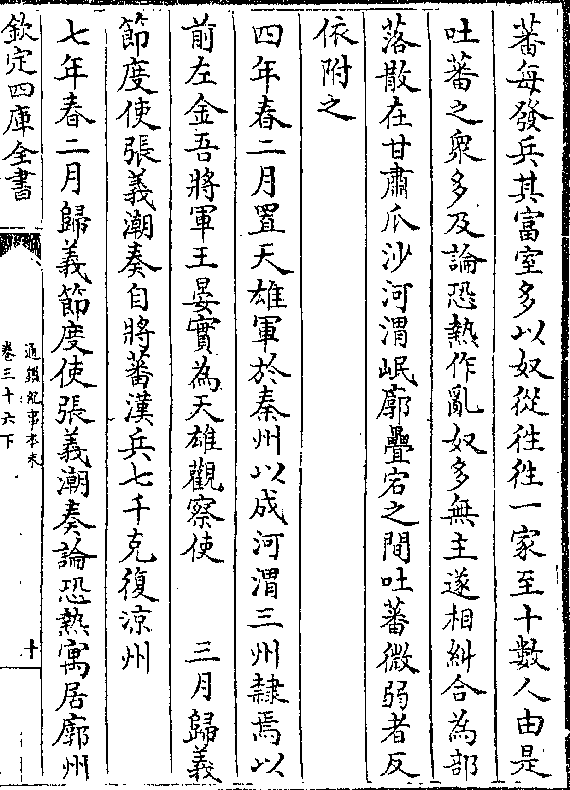 蕃每發兵其富室多以奴從往往一家至十數人由是
吐蕃之衆多及論恐熱作亂奴多無主遂相糾合為部
落散在甘肅瓜沙河渭岷廓疊宕之間吐蕃微弱者反
依附之
四年春二月置天雄軍於秦州以成河渭三州隸焉以
前左金吾將軍王晏實為天雄觀察使　三月歸義
節度使張義潮奏自將蕃漢兵七千克復涼州
七年春二月歸義節度使張義潮奏論恐熱寓居廓州
欽定四庫全書
通鑑紀事本末
卷三十六下
十